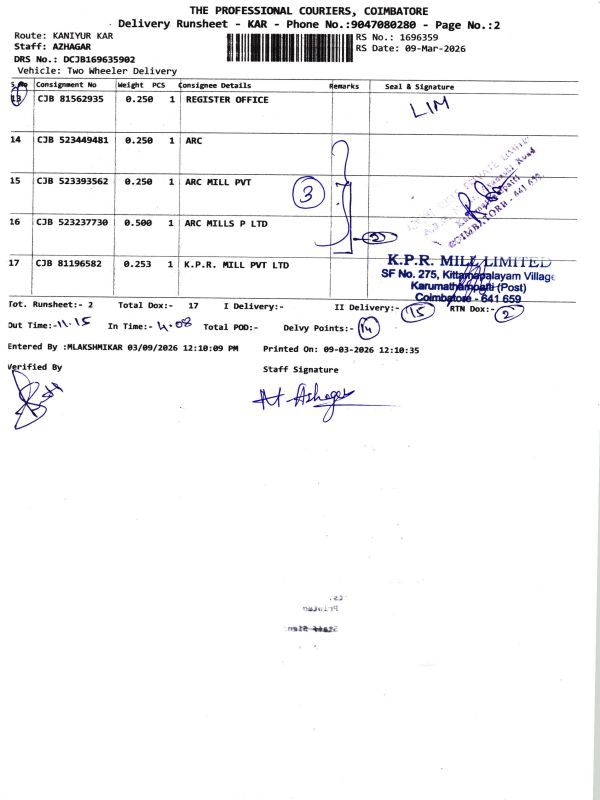 THE PROFESSIONAL COURIERS, COIMBATORE
Delivery Runsheet - KAR - Phone No.:9047080280 - Page No.:2
Route: KANIYUR KAR
RS No.: 1696359
Staff: AZHAGAR
RS Date: 09-Mar-2026
DRS No.: DCJB169635902
Vehicle: Two Wheeler Delivery
S.No Consignment No Weight PCS Consignee Details Remarks Seal & Signature
13 CJB 81562935 0.250 1 REGISTER OFFICE
LIM
14 CJB 523449481 0.250 1 ARC
15 CJB 523393562 0.250 1 ARC MILL PVT
3
16 CJB 523237730 0.500 1 ARC MILLS P LTD
2
COIMBATORE - 641 659
17 CJB 81196582 0.253 1 K.P.R. MILL PVT LTD
K.P.R. MILL LIMITED
SF No. 275, Kittampalayam Village
Karumathampatti (Post)
Coimbatore - 641 659
Tot. Runsheet:- 2 Total Dox:- 17 I Delivery:- II Delivery:- 15 RTN Dox:- 2
Out Time:- 11.15 In Time:- 4.08 Total POD:- Delvy Points:- 14
Entered By :MLAKSHMIKAR 03/09/2026 12:10:09 PM Printed On: 09-03-2026 12:10:35
Verified By
Staff Signature